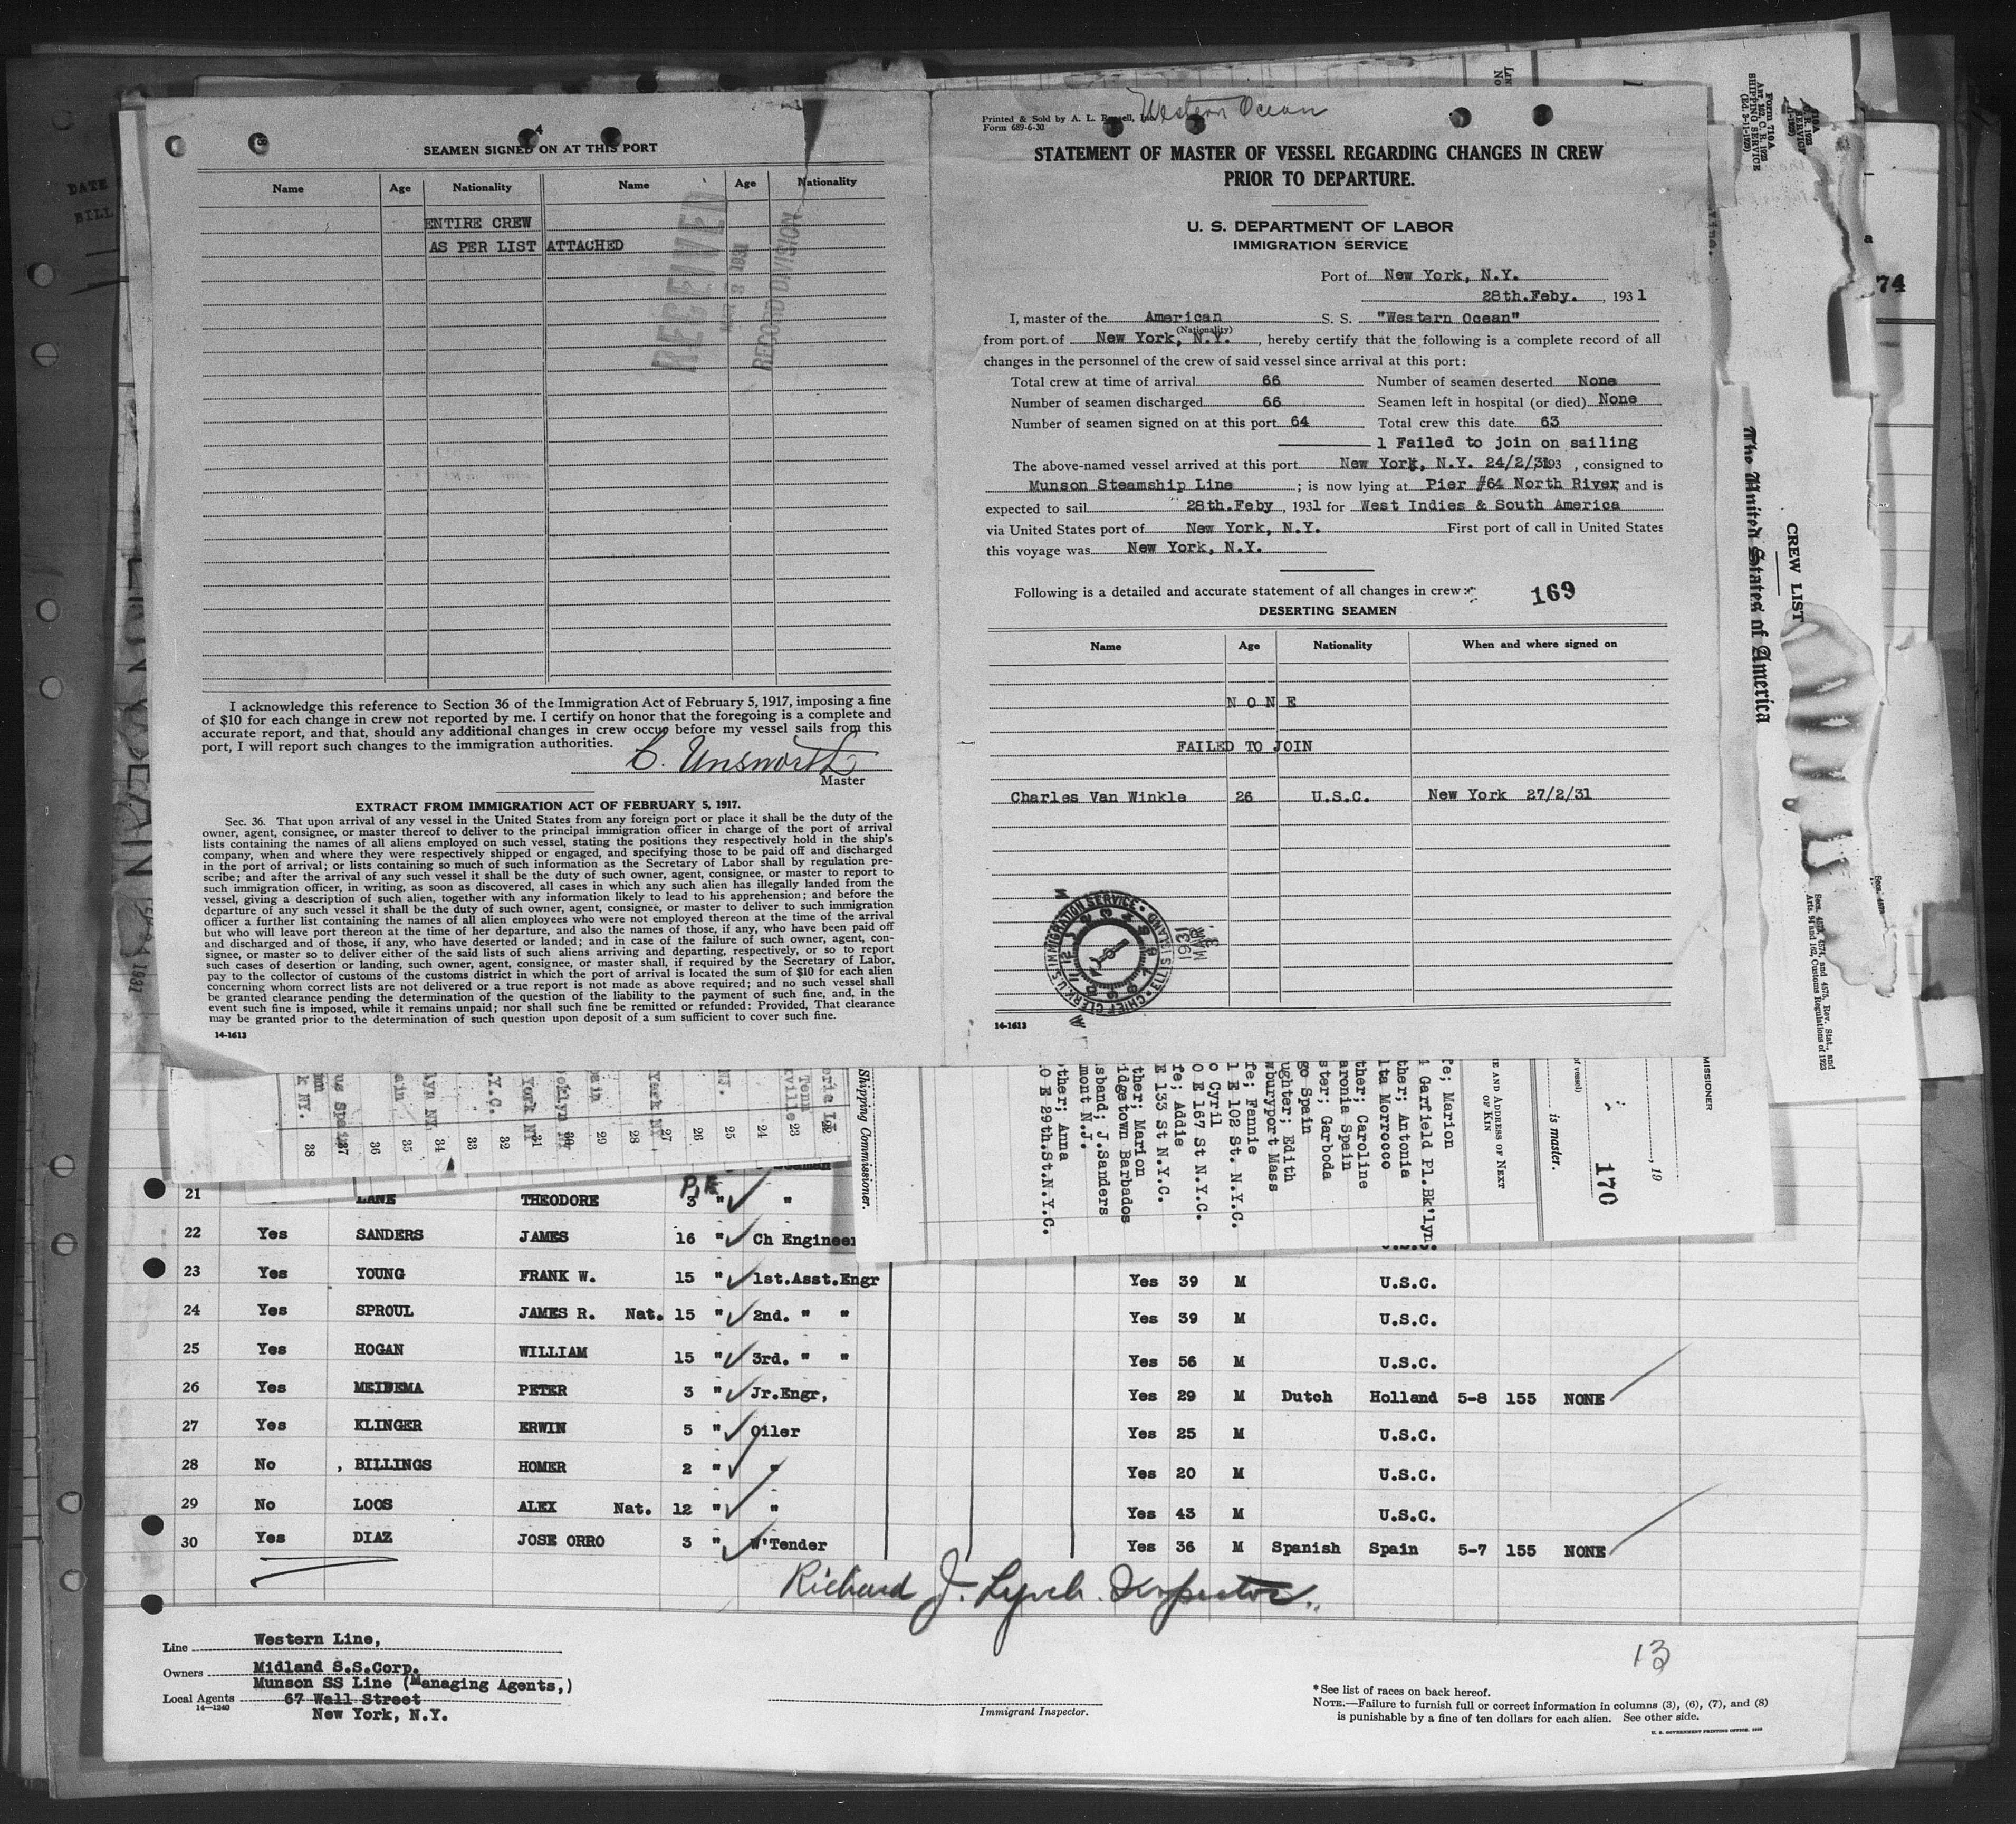 SEAMEN SIGNED ON AT THIS PORT
Name Age Nationality Name Age Nationality
ENTIRE CREW
AS PER LIST ATTACHED
RECEIVED
MAR 3 1931
RECORD DIVISION
I acknowledge this reference to Section 36 of the Immigration Act of February 5, 1917, imposing a fine
of $10 for each change in crew not reported by me. I certify on honor that the foregoing is a complete and
accurate report, and that, should any additional changes in crew occur before my vessel sails from this
port, I will report such changes to the immigration authorities.
C. Unsworth
Master
EXTRACT FROM IMMIGRATION ACT OF FEBRUARY 5, 1917.
Sec. 36. That upon arrival of any vessel in the United States from any foreign port or place it shall be the duty of the
owner, agent, consignee, or master thereof to deliver to the principal immigration officer in charge of the port of arrival
lists containing the names of all aliens employed on such vessel, stating the positions they respectively hold in the ship's
company, when and where they were respectively shipped or engaged, and specifying those to be paid off and discharged
in the port of arrival; or lists containing so much of such information as the Secretary of Labor shall by regulation pre-
scribe; and after the arrival of any such vessel it shall be the duty of such owner, agent, consignee, or master to report to
such immigration officer, in writing, as soon as discovered, all cases in which any such alien has illegally landed from the
vessel, giving a description of such alien, together with any information likely to lead to his apprehension; and before the
departure of any such vessel it shall be the duty of such owner, agent, consignee, or master to deliver to such immigration
officer a further list containing the names of all alien employees who were not employed thereon at the time of the arrival
but who will leave port thereon at the time of her departure, and also the names of those, if any, who have been paid off
and discharged and of those, if any, who have deserted or landed; and in case of the failure of such owner, agent, con-
signee, or master so to deliver either of the said lists of such aliens arriving and departing, respectively, or so to report
such cases of desertion or landing, such owner, agent, consignee, or master shall, if required by the Secretary of Labor,
pay to the collector of customs of the customs district in which the port of arrival is located the sum of $10 for each alien
concerning whom correct lists are not delivered or a true report is not made as above required; and no such vessel shall
be granted clearance pending the determination of the question of the liability to the payment of such fine, and, in the
event such fine is imposed, while it remains unpaid; nor shall such fine be remitted or refunded: Provided, That clearance
may be granted prior to the determination of such question upon deposit of a sum sufficient to cover such fine.
14-1613
Western Ocean
Printed & Sold by A. L. Russell, Inc.
Form 689-6-30
STATEMENT OF MASTER OF VESSEL REGARDING CHANGES IN CREW
PRIOR TO DEPARTURE.
U. S. DEPARTMENT OF LABOR
IMMIGRATION SERVICE
Port of New York, N.Y.
28th.Feby. , 1931
I, master of the American S. S. "Western Ocean"
(Nationality)
from port of New York, N.Y. , hereby certify that the following is a complete record of all
changes in the personnel of the crew of said vessel since arrival at this port:
Total crew at time of arrival 66 Number of seamen deserted None
Number of seamen discharged 66 Seamen left in hospital (or died) None
Number of seamen signed on at this port 64 Total crew this date 63
1 Failed to join on sailing
The above-named vessel arrived at this port New York, N.Y. 24/2/31 193 , consigned to
Munson Steamship Line ; is now lying at Pier #64 North River and is
expected to sail 28th.Feby , 1931 for West Indies & South America
via United States port of New York, N.Y. First port of call in United States
this voyage was New York, N.Y.
Following is a detailed and accurate statement of all changes in crew:
169
DESERTING SEAMEN
Name Age Nationality When and where signed on
N O N E
FAILED TO JOIN
Charles Van Winkle 26 U.S.C. New York 27/2/31
CHIEF CLERK U.S. IMMIGRATION SERVICE · ELLIS ISLAND
MAR 3
1931
14-1613
Form 710A
Art. 162, C. R. 1923
SHIPPING SERVICE
(Ed. 3-11-1929)
74
The United States of America
CREW LIST
Secs. 4573, 4574, and 4575, Rev. Stat., and
Arts. 94 and 162, Customs Regulations of 1923
38
37
36
35
34
33
32
31
30
29
28
27
26
25
24
23
22
Shipping Commissioner.
O E 29th.St.N.Y.C.
ther; Anna
mont N.J.
sband; J.Sanders
idgetown Barbados
ther; Marion
E 133 St N.Y.C.
fe; Addie
O E 167 St N.Y.C.
o Cyril
l E 102 St. N.Y.C.
fe; Fannie
wburyport Mass
ughter; Edith
go Spain
ster; Garboda
aronia Spain
ther; Caroline
lta Morrocco
ther; Antonia
Garfield Pl.Bk'lyn.
fe; Marion
E AND ADDRESS OF NEXT
OF KIN
is master.
of vessel)
170
, 19
MISSIONER
21 LANE THEODORE 3 " "
22 Yes SANDERS JAMES 16 " Ch Engineer
23 Yes YOUNG FRANK W. 15 " 1st.Asst.Engr Yes 39 M U.S.C.
24 Yes SPROUL JAMES R. Nat. 15 " 2nd. " " Yes 39 M U.S.C.
25 Yes HOGAN WILLIAM 15 " 3rd. " " Yes 56 M U.S.C.
26 Yes MEINEMA PETER 3 " Jr.Engr, Yes 29 M Dutch Holland 5-8 155 NONE
27 Yes KLINGER ERWIN 5 " Oiler Yes 25 M U.S.C.
28 No , BILLINGS HOMER 2 " " Yes 20 M U.S.C.
29 No LOOS ALEX Nat. 12 " " Yes 43 M U.S.C.
30 Yes DIAZ JOSE ORRO 3 " W'Tender Yes 36 M Spanish Spain 5-7 155 NONE
Richard J. Lynch. Inspector.
Line Western Line,
Owners Midland S.S.Corp.
Munson SS Line (Managing Agents,)
Local Agents 67 Wall Street
14-1240
New York, N.Y.
Immigrant Inspector.
13
*See list of races on back hereof.
NOTE.—Failure to furnish full or correct information in columns (3), (6), (7), and (8)
is punishable by a fine of ten dollars for each alien. See other side.
U. S. GOVERNMENT PRINTING OFFICE